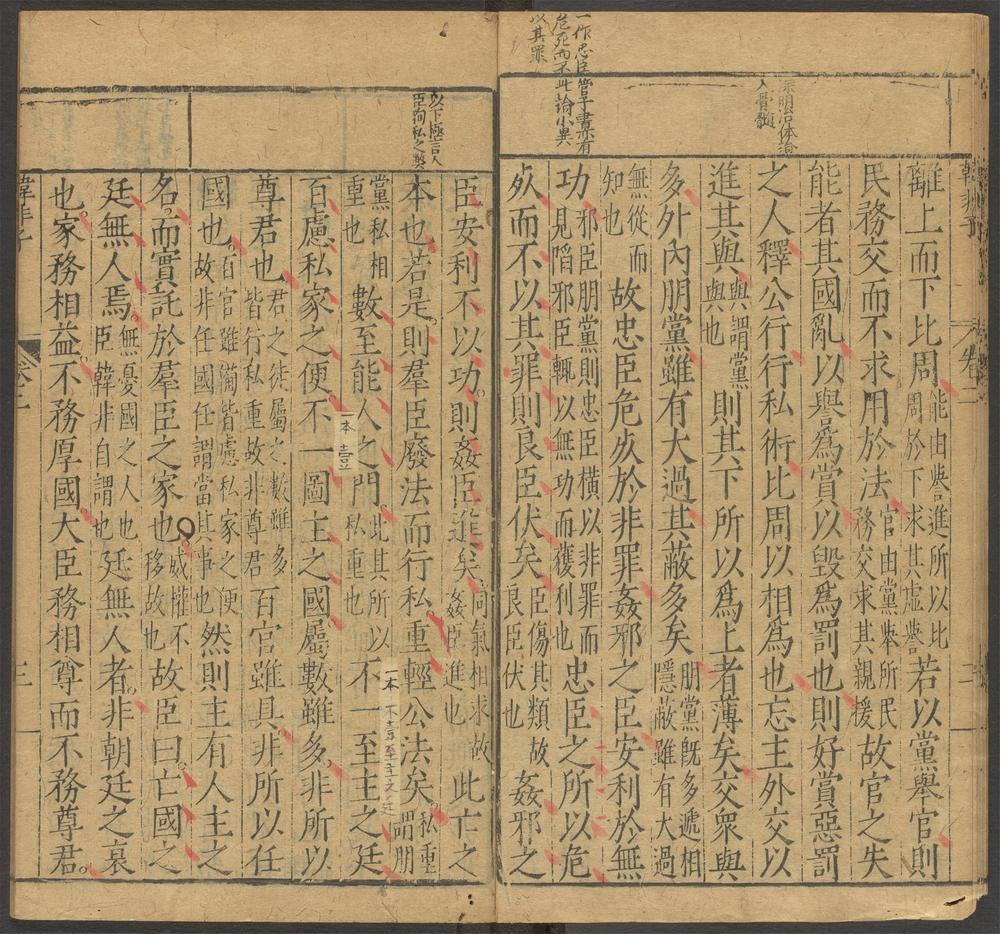 一作忠臣
危死而不
以其罪
管子書亦有
此論小異
深明治体淪
入骨髓
韓非子
卷二
離上而下比周能由譽進所以比周於下求其虛譽若以黨舉官則
民務交而不求用於法官由黨舉所民務交求其親援故官之失
能者其國亂以譽爲賞以毀爲罰也則好賞惡罰
之人釋公行行私術比周以相爲也忘主外交以
進其與與謂黨與也則其下所以爲上者薄矣交衆與
多外內朋黨雖有大過其蔽多矣朋黨旣多遞相隱蔽雖有大過
無從而知也故忠臣危死於非罪姦邪之臣安利於無
功邪臣朋黨則忠臣橫以非罪而見陷邪臣輒以無功而獲利也忠臣之所以危
死而不以其罪則良臣伏矣臣傷其類故良臣伏也姦邪之
以下極言人
臣徇私之弊
臣安利不以功則姦臣進矣同氣相求故姦臣進也此亡之
本也若是則羣臣廢法而行私重輕公法矣私重謂朋
黨私相重也數至能人之門此其所以私重也不一至主之廷
一本壹
一本不壹至主之廷
百慮私家之便不一圖主之國屬數雖多非所以
尊君也君之徒屬之數雖多皆行私重故非尊君百官雖具非所以任
國也百官雖備皆慮私家之便故非任國任謂當其事也然則主有人主之
名而實託於羣臣之家也威權不移故也故臣曰亡國之
廷無人焉無憂國之人也臣韓非自謂也廷無人者非朝廷之衰
也家務相益不務厚國大臣務相尊而不務尊君
韓非子
卷二
三